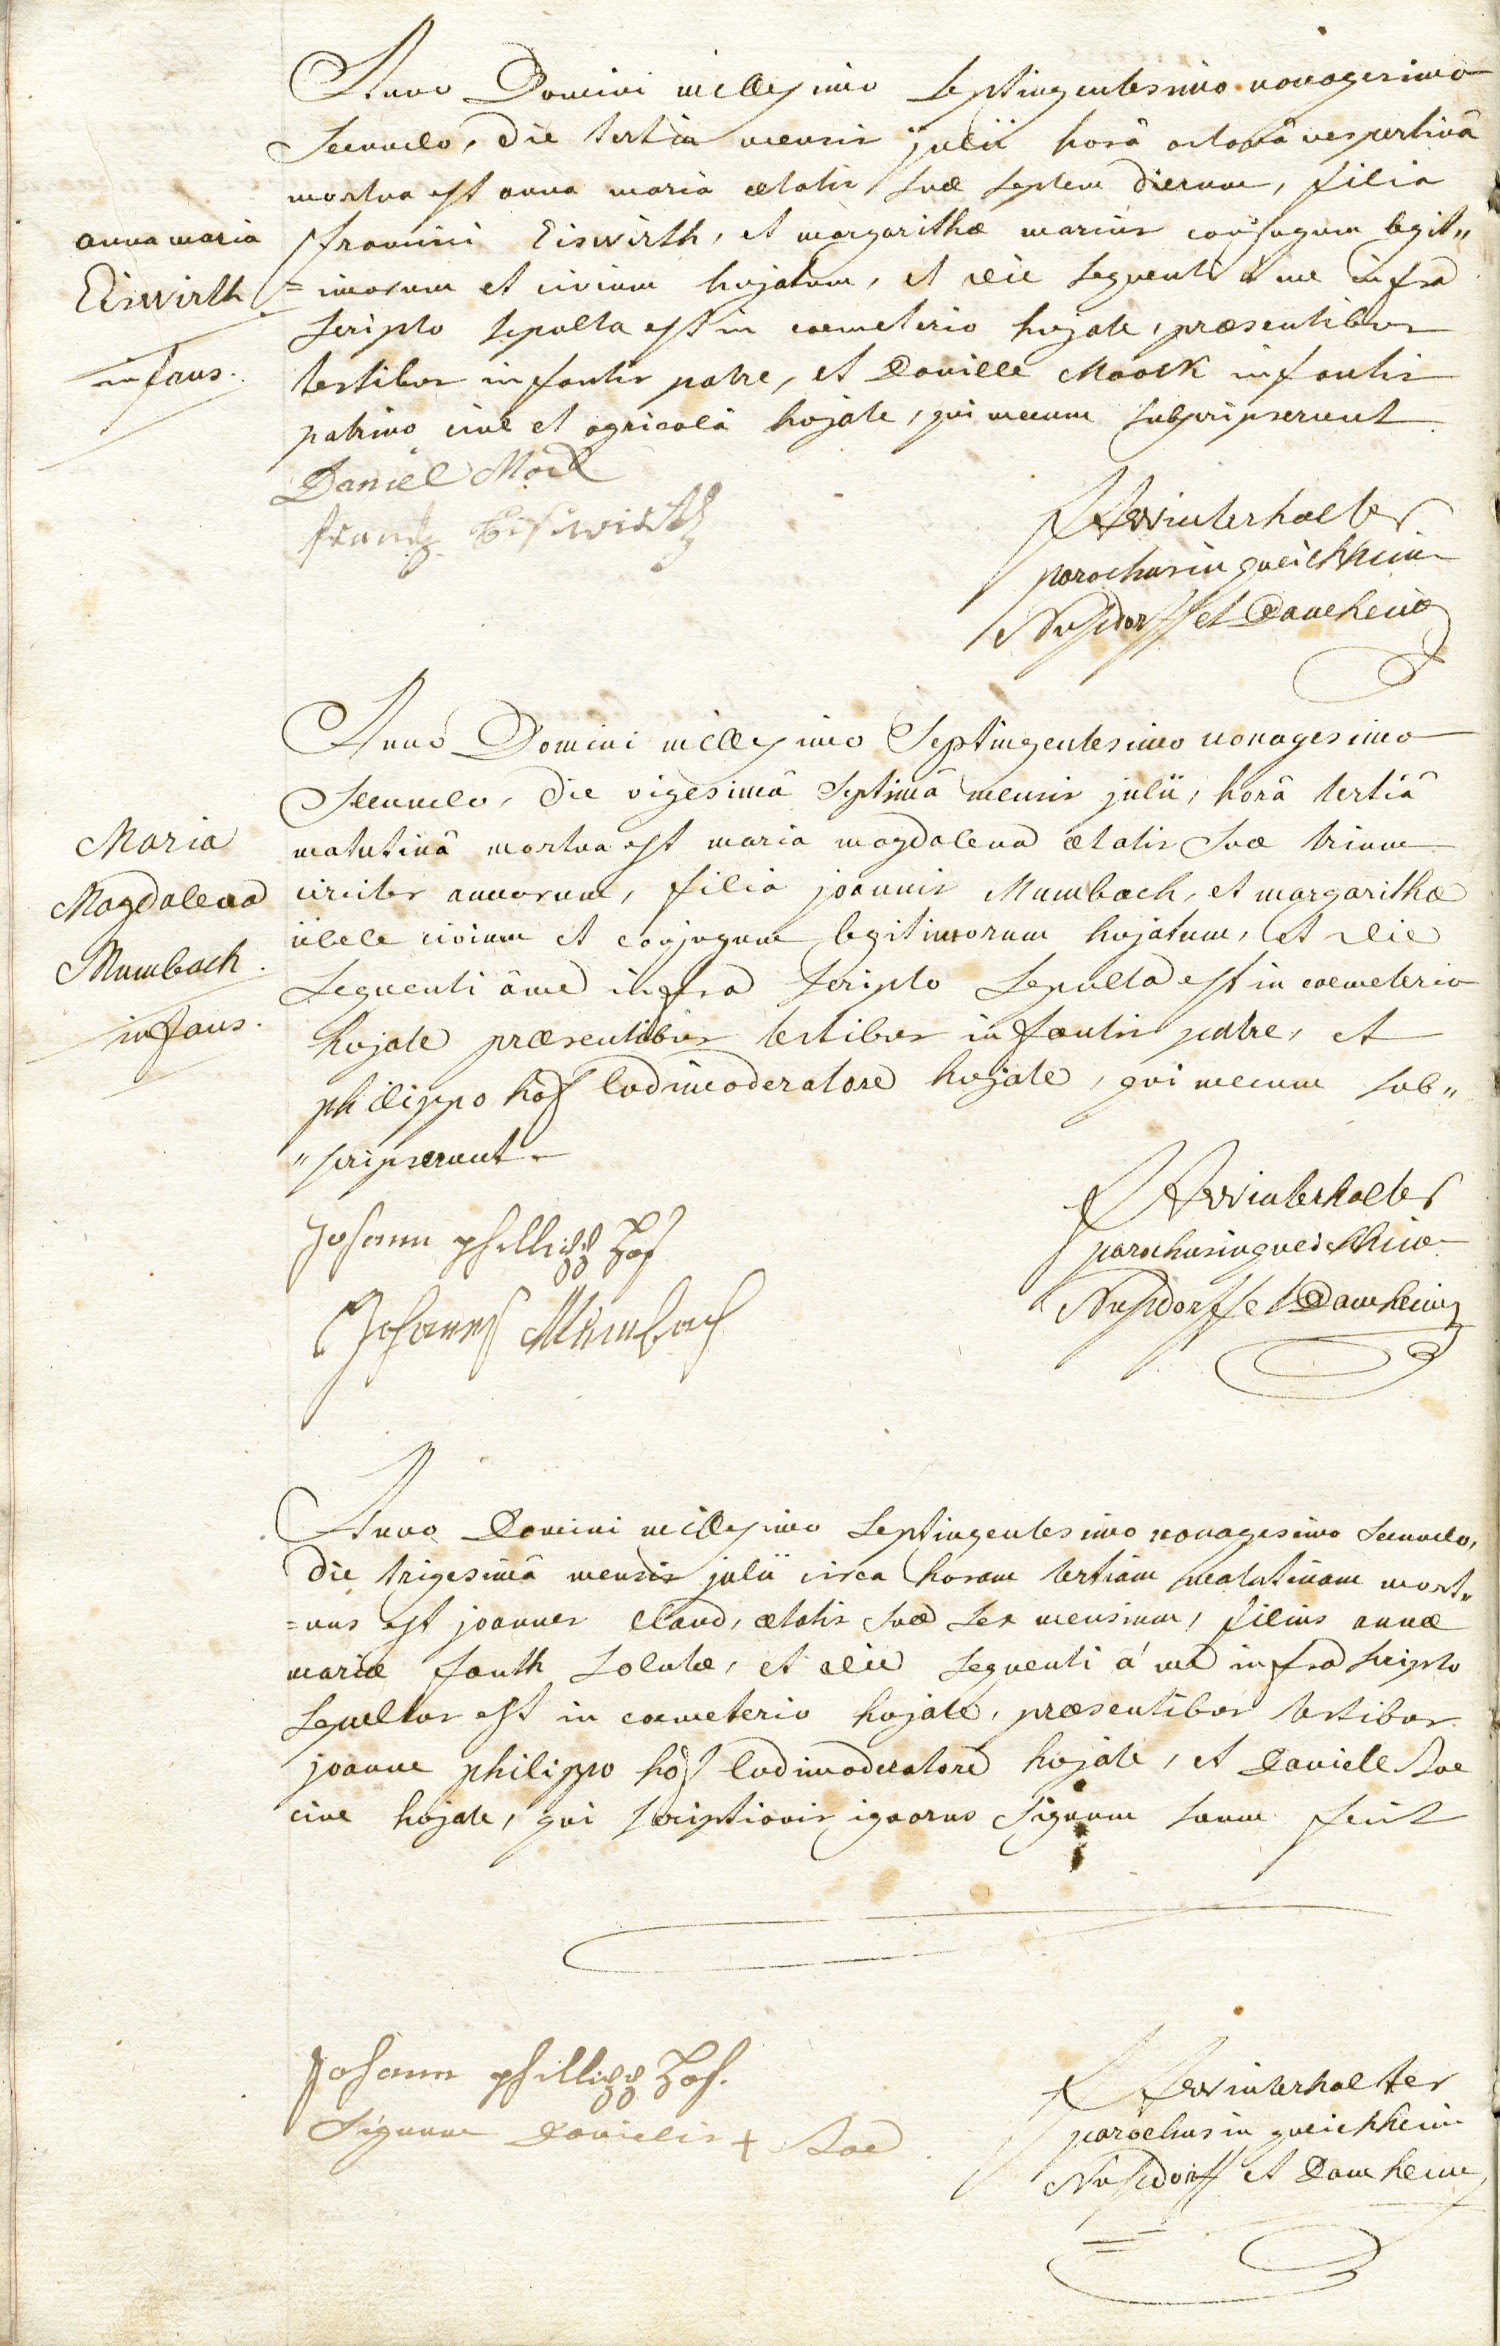 Anno Domini millesimo septingentesimo nonagesimo
secundo, die tertia mensis julii horâ octavâ vespertinâ
mortua est anna maria ætatis suæ septem dierum, filia
anna maria
francisci Eiswirth, et margarithæ marius conjugum legit„
Eiswirth
=imorum et civium hujatum, et die sequenti a me infra
scripto sepulta est in coemeterio hujate, præsentibus
infans.
testibus infantis patre, et Danielle Moock infantis
patrino cive et agricolâ hujate, qui mecum subscripserunt
Daniel Mock
frantz Eisswirth
Winterhalter
parochus in queichheim
Nusdorff et Damheim
Anno Domini millesimo Septingentesimo nonagesimo
Secundo, die vigesimâ Septimâ mensis julii, horâ tertiâ
matutinâ mortua est maria magdalena ætatis suæ trium
Maria
circiter annorum, filia joannis Mumbach, et margarithæ
Magdalena
civium et conjugum legitimorum hujatum, et die
Mumbach.
sequenti â me infra scripto sepulta est in coemeterio
infans.
hujate præsentibus testibus infantis patre, et
philippo hof ludimoderatore hujate, qui mecum sub„
„scripserunt.
Johann phillipp Hof
Johannes Mumbach
Winterhalter
parochus in queichheim
Nusdorff et Damheim
Anno Domini millesimo septingentesimo nonagesimo secundo,
die trigesimâ mensis julii circa horam tertiam matutinam mort„
=uus est joannes ætatis suæ sex mensium, filius annæ
mariæ fauth solutæ, et die sequenti á me infra scripto
sepultus est in coemeterio hujate, præsentibus testibus
joanne philippo hof ludimoderatore hujate, et Daniele
cive hujate, qui scriptionis ignarus signum suum fecit
Johann phillipp Hof.
Signum Danielis +
Winterhalter
parochus in queichheim
Nusdorff et Damheim